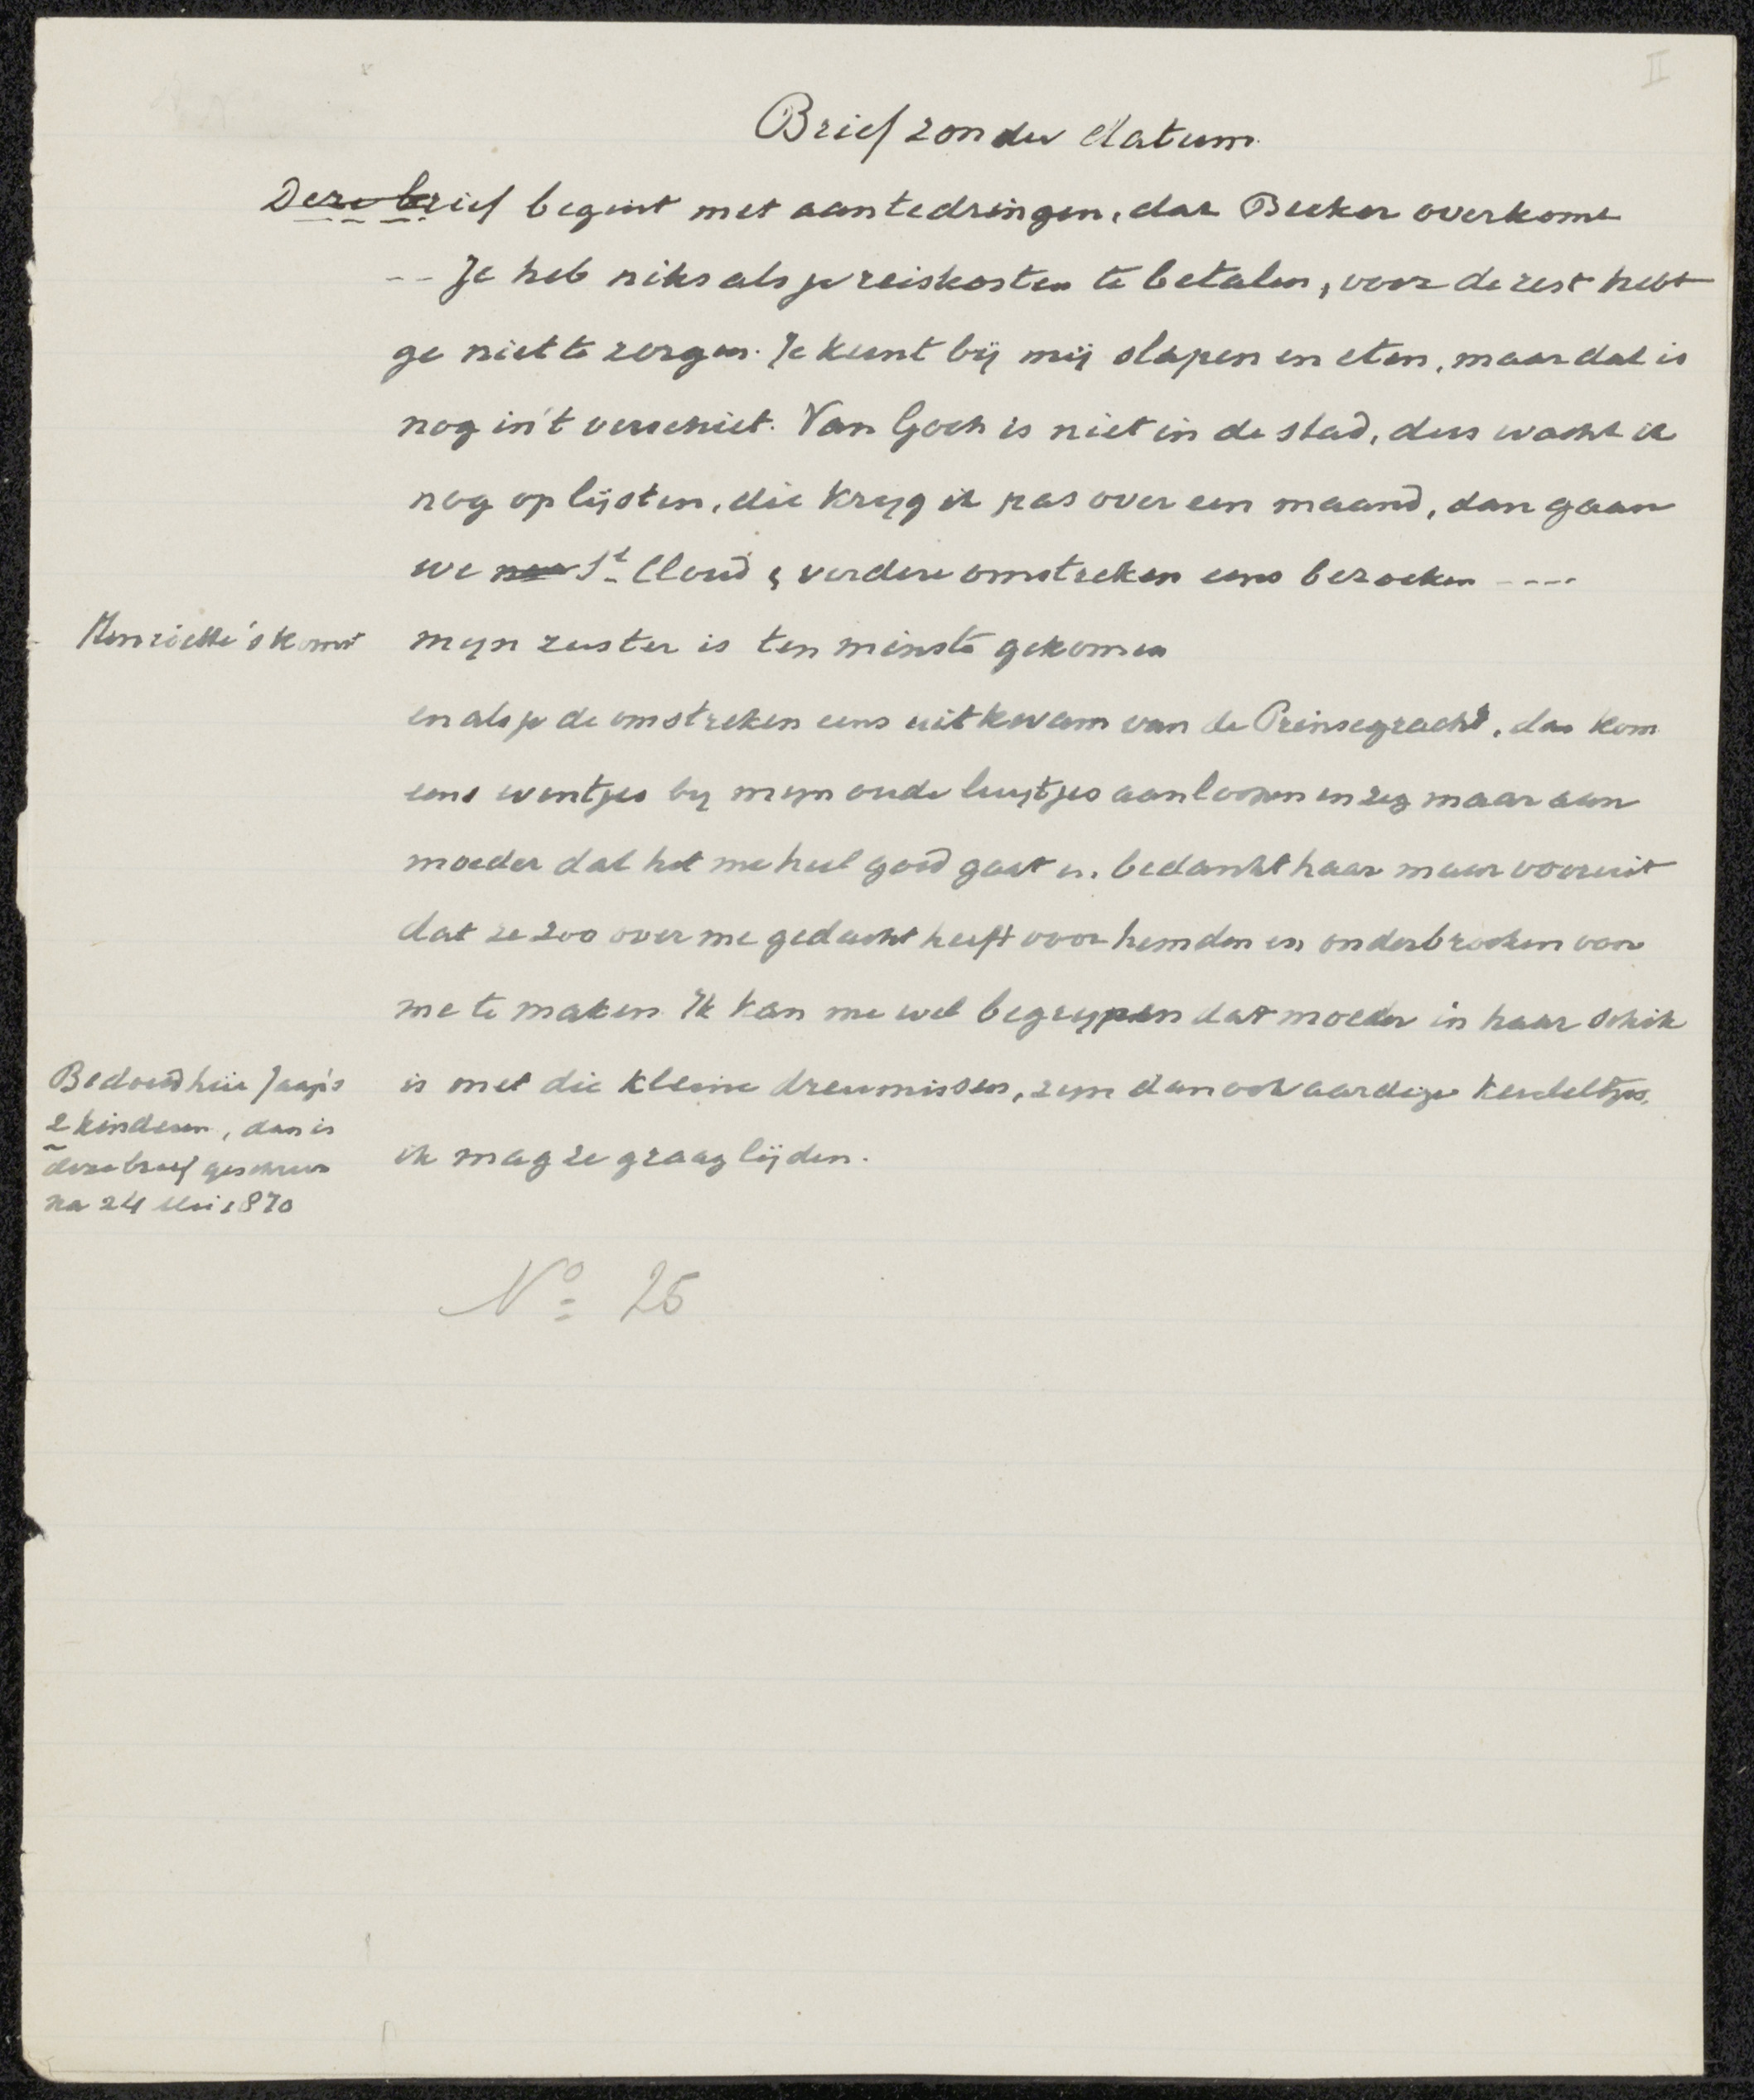 II
Brief zonder datum
Deze brief begint met aantedringen, dat Becker overkomt
-- Je heb niks als je reiskosten te betalen, voor de rest hebt
ge niet te zorgen. Je kunt bij mij slapen en eten, maar dat is
nog in't verschiet. Van Goch is niet in de stad, dus wacht ik
nog op lijsten, die kryg ik pas over een maand, dan gaan
we naar St Cloud & verdere omstreken eens bezoeken ----
Henriette's komst
myn zuster is ten minste gekomen
en als je de omstreken eens uitkwam van de Prinsegracht, dan kom
eens eventjes by myn oude luytjes aanloopen en zeg maar aan
moeder dat het me heel goed gaat en bedankt haar maar vooruit
dat ze zoo over me gedacht heeft voor hemden en onderbroeken voor
me te maken Ik kan me wel begrypen dat moeder in haar schik
is met die kleine dreumissen, zyn dan ook aardige kereltjes,
ik mag ze graag lijden.
Bedoeld hij Jaap's
2 kinderen, dan is
deze brief geschreven
na 24 Mei 1870
No 25